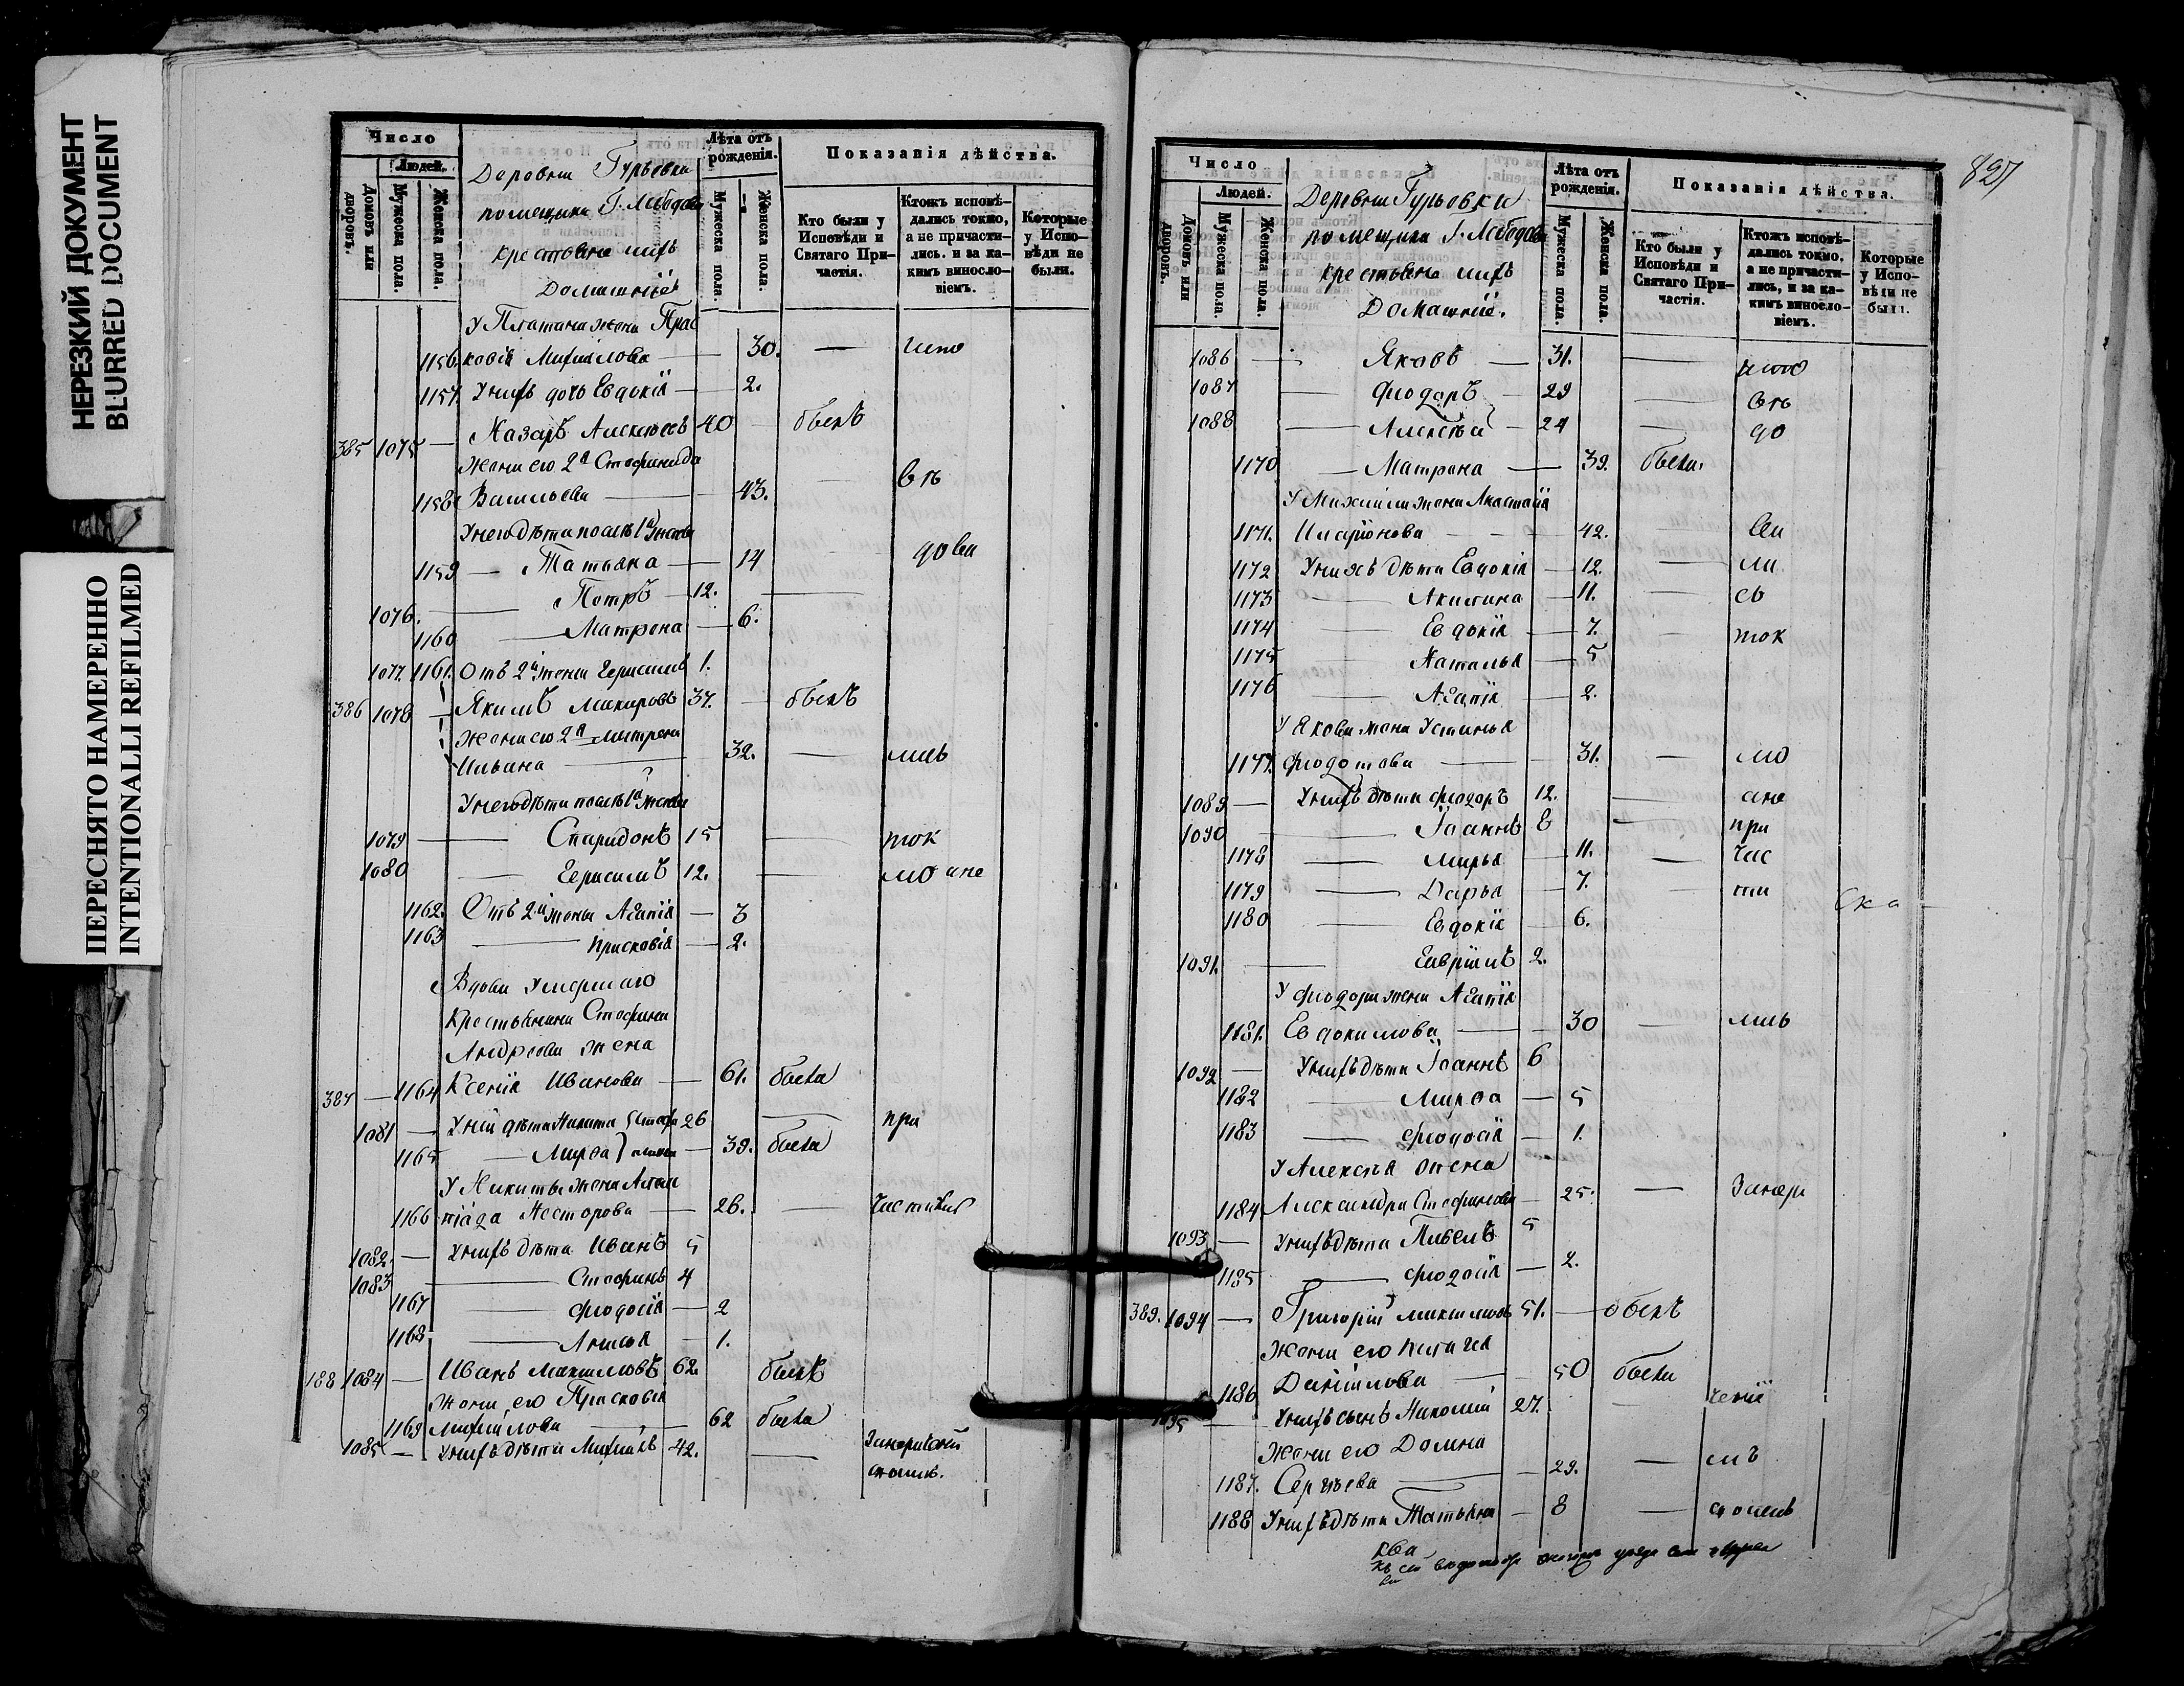 НЕРЕЗКИЙ ДОКУМЕНТ
BLURRED DOCUMENT
ПЕРЕСНЯТО НАМЕРЕННО
INTENTIONALLI REFILMED
Число
Людей.
Домовъ или дворовъ.
Мужеска пола.
Женска пола.
Деревни Гурьевки
помещика Г. Лебедева
крестьяне ихъ
Домашніе
Лѣта отъ рожденія.
Мужеска пола.
Женска пола.
Показанія дѣйства.
Кто были у Исповѣди и Святаго При-частія.
Ктожъ исповѣ-дались токмо, а не причасти-лись. и за ка-кимъ винослo-віемъ.
Которые у Испо-вѣди не были.
У Платона жена Прас
1156. ковія Михайлова — 30. —
1157. У нихъ дочь Евдокія — 2.
385 1075 — Назаръ Алексѣевъ 40 — былъ
Жена его 2я Стефанида
1158 Васильева — 43. — въ
У него дѣти послѣ 1й жены
1159 — Татьяна — 14
1076. — Петръ — 12. —
1160 — Матрона — 6.
1077. 1161. Отъ 2й жены Герасимъ 1.
386 1078 — Якимъ Макаровъ 37. — былъ
Жена его 2я Матрона
32. —
У него дѣти послѣ 1й жены
1079 — Спиридонъ 15 — ток
1080 — Герасимъ 12. — мо ане
1162. Отъ 2й жены Агапія — 3
1163 — Прасковія — 2.
Вдова умершаго
Крестьянина Стефана
Андреева жена
387 — 1164 Ксенія Иванова — 61. была
1081 — У ней дѣти Никита 26 — при
1165 — Марѳа — 39. была
У Никиты жена
1166 Несторова — 26. —
1082. — У нихъ дѣти Иванъ 5
1083 — Стефанъ 4
1167 — Феодосія — 2
1168 — Анисья — 1.
188 1084 — Иванъ Максимовъ 62. былъ
Жена его Прасковья
1169 Михайлова — 62 была
1085 — У нихъ дѣти Михаилъ 42. —
827
Число
Людей.
Домовъ или дворовъ.
Мужеска пола.
Женска пола.
Деревни Гурьевки
помещика Г. Лебедева
крестьяне ихъ
Домашніе.
Лѣта отъ рожденія.
Мужеска пола.
Женска пола.
Показанія дѣйства.
Кто были у Исповѣди и Святаго При-частія.
Ктожъ исповѣ-дались токмо, а не причасти-лись, и за ка-кимъ винослo-віемъ.
Которые у Испо-вѣди не были.
1086 — Яковъ — 31. —
1087 — Феодоръ — 29 — въ
1088 — Алексѣй — 24 — до
1170 — Матрона — 39. была.
У Михаила жена Анастасія
1171. Иларіонова — 42. —
1172 У нихъ дѣти Евдокія — 12. — ли
1173 — Акилина — 11. — сь
1174 — Евдокія — 7. — ток
1175 — Наталья — 5
1176 — Агапія — 2.
У Якова жена Устинья
1177. Феодотова — 31. — мо
1089 — У нихъ дѣти Феодоръ 12. — ане
1090 — Іоаннъ 8 — при
1178 — Марья — 11. — час
1179 — Дарья — 7. — ти
1180 — Евдокія — 6.
1091. — Гавріилъ 2.
У Феодора жена Агапія
1181. Евдокимова — 30 —
1092 — У нихъ дѣти Іоаннъ 6
1182 — Марѳа — 5
1183 — Феодосія — 1.
У Алексѣя жена
1184 Александра Стефанова — 25. —
1093 — У нихъ дѣти Павелъ 5
1185 — Феодосія — 2.
389. 1094 — Григорій Максимовъ 51. — былъ
Жена его
1186 Даніилова — 50 была
1095 — У нихъ сынъ Николай 27. —
Жена его Домна
1187. Сергѣева — 29. —
1188 У нихъ дѣти Татьяна — 8 —